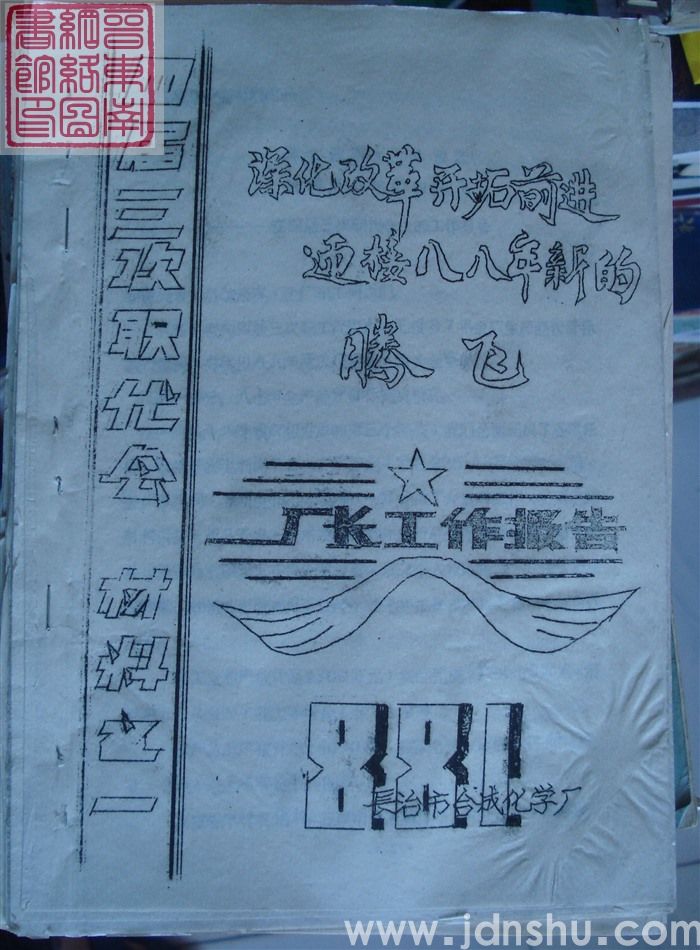 晋东南
网络图
书馆印
四届三次职代会 材料之一
深化改革 开拓前进
迎接八八年新的
腾飞
厂长工作报告
88.1
長治市合成化学厂
www.jdnshu.com